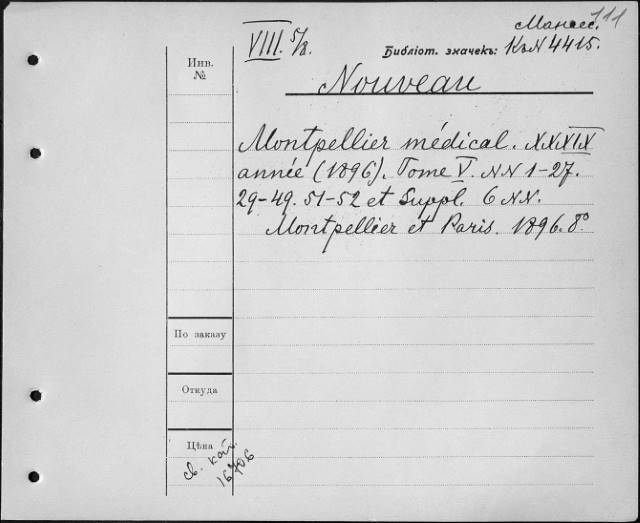 111
VIII. 5/8.
Манасс.
Библіот. значекъ: КъN 4415.
Инв.
№
Nouveau
Montpellier médical. XXXIX
année (1896). Tome V. NN 1-27.
29-49. 51-52 et Suppl. 6 NN.
Montpellier et Paris. 1896. 8°
По заказу
Откуда
Цѣна
св. кат.
16706